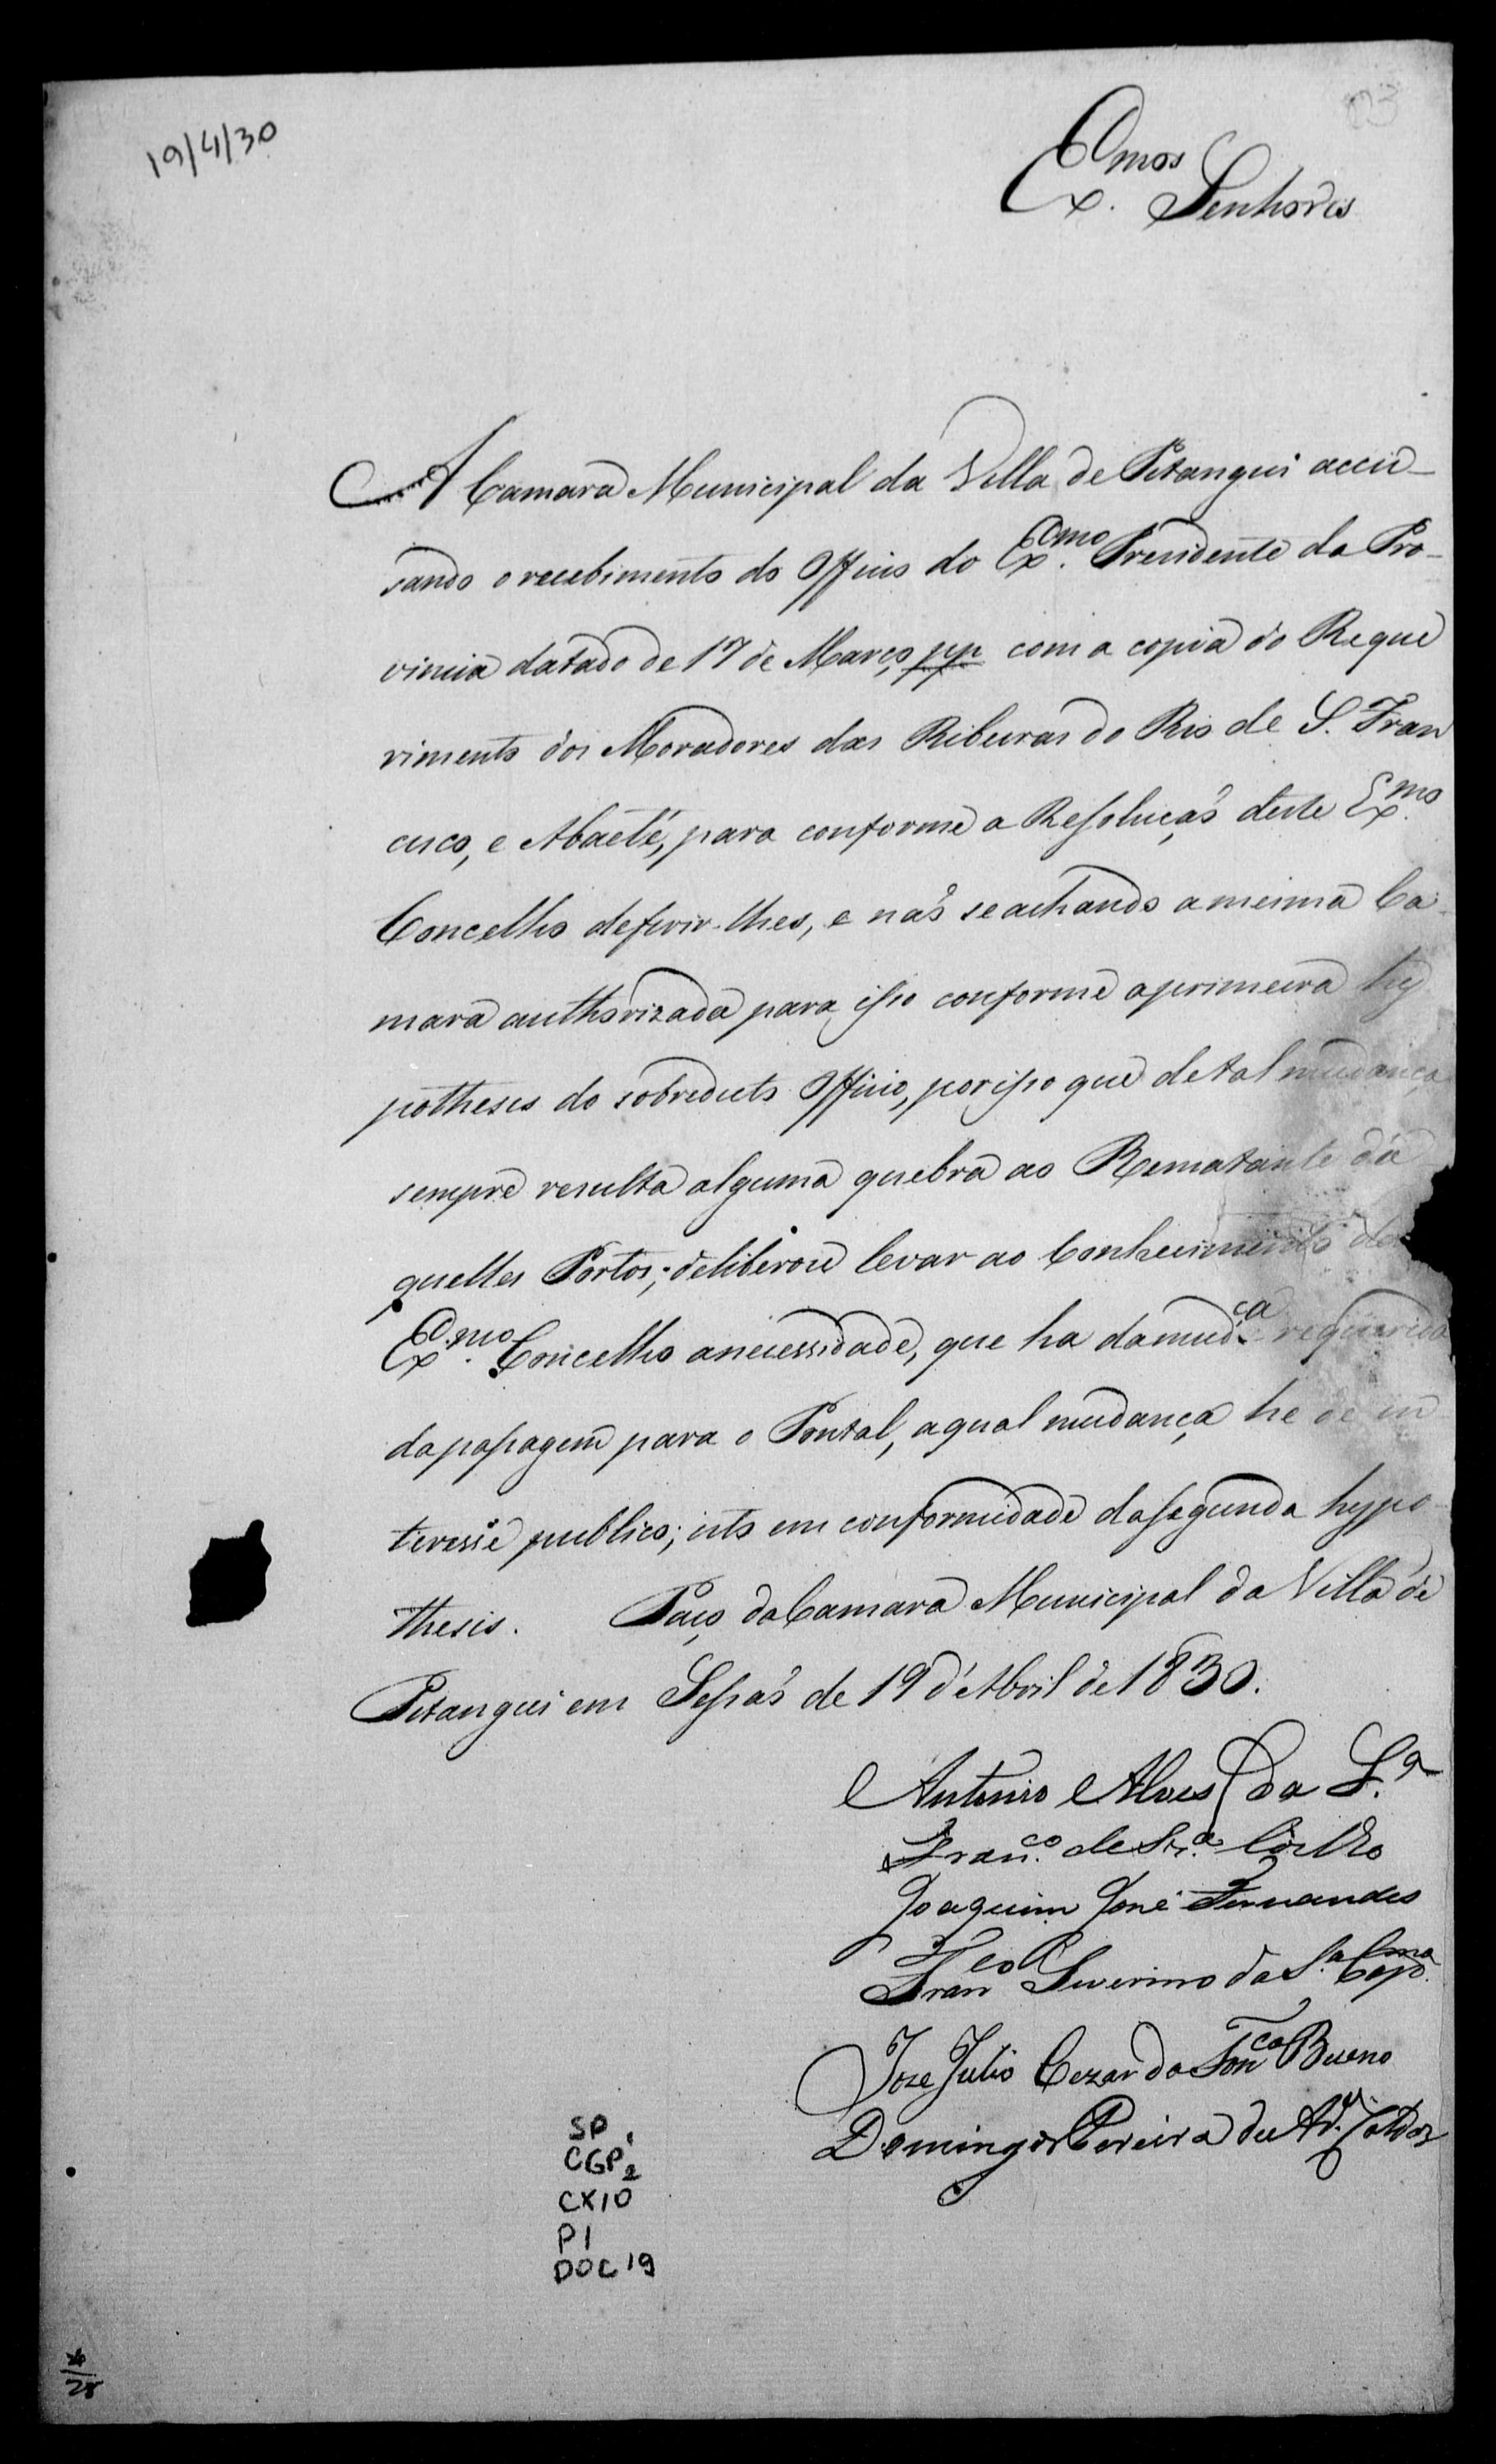 19/4/30
Ex.mos Senhores
A Camara Municipal da Villa de Pitangui accu-
sando o recebimento do Officio do Ex.mo Presidente da Pro-
vincia datado de 17 de Março pp com a copia do Reque
rimento dos Moradores das Ribeiras do Rio de S. Fran
cisco, e Abaeté, para conforme a Resoluçaõ deste Ex.mo
Concelho deferir-lhes, e naõ se achando a mesma Ca-
mara authorizada para isso conforme a primeira hy
pothesis do sobredicto Officio, por isso que de tal mudança
sempre resulta alguma quebra ao Rematante da
quelles Portos; deliberou levar ao Conhecimento do
Ex.mo Concelho a necessidade, que ha da mud.ca requerida
da passagem para o Pontal, a qual mudança he de in
teresse publico; isto em conformidade da segunda hypo
thesis. Paço da Camara Municipal da Villa de
Pitangui em Sessaõ de 19 d'Abril de 1830.
Antonio Alves da S.a
Fran.co de Sz.a Coelho
Joaquim José Fernandes
Fran co Severino da S.a
Joze Julio Cezar da Fon ca Bueno
Domingos Pereira de
SP 1
CGP 2
CX10
P1
DOC 19